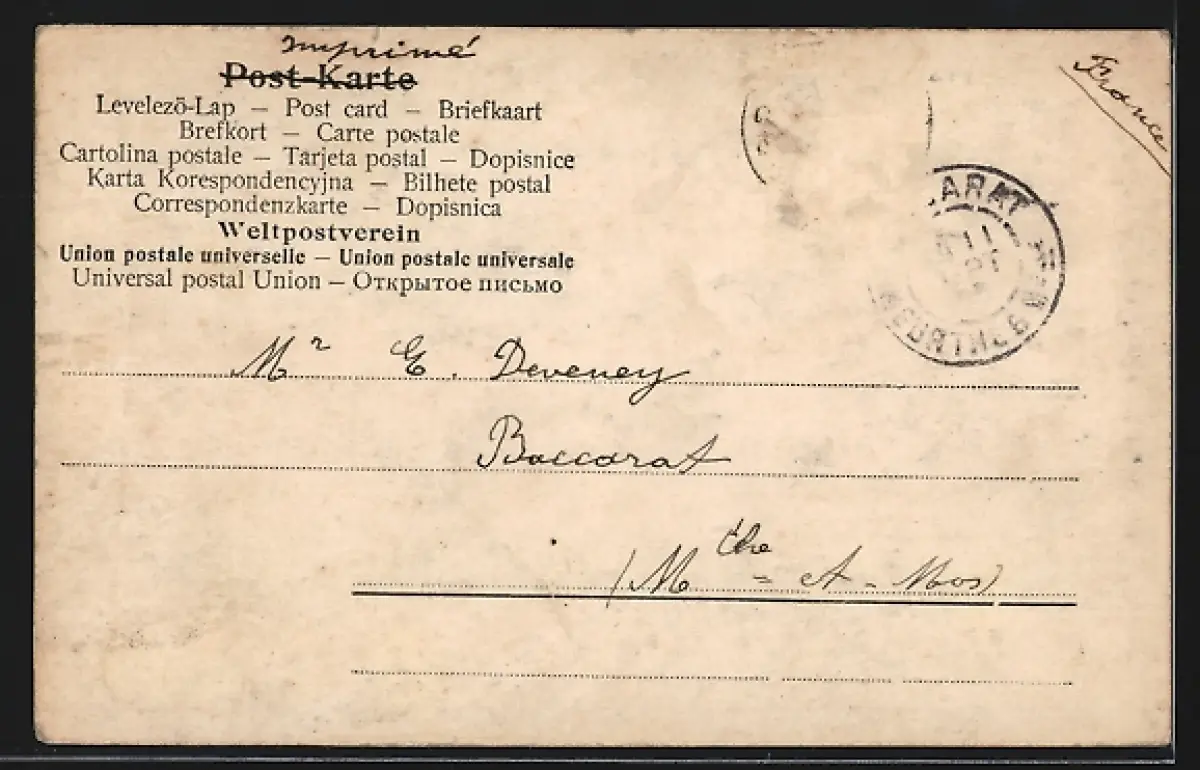 Imprimé
Post-Karte
Levelezõ-Lap — Post card — Briefkaart
Brefkort — Carte postale
Cartolina postale — Tarjeta postal — Dopisnice
Karta Korespondencyjna — Bilhete postal
Correspondenzkarte — Dopisnica
Weltpostverein
Union postale universelle — Union postale universale
Universal postal Union — Открытое письмо
France
ARAT
11
Mr E. Deveney
Baccarat
(Mthe = et - Mos)